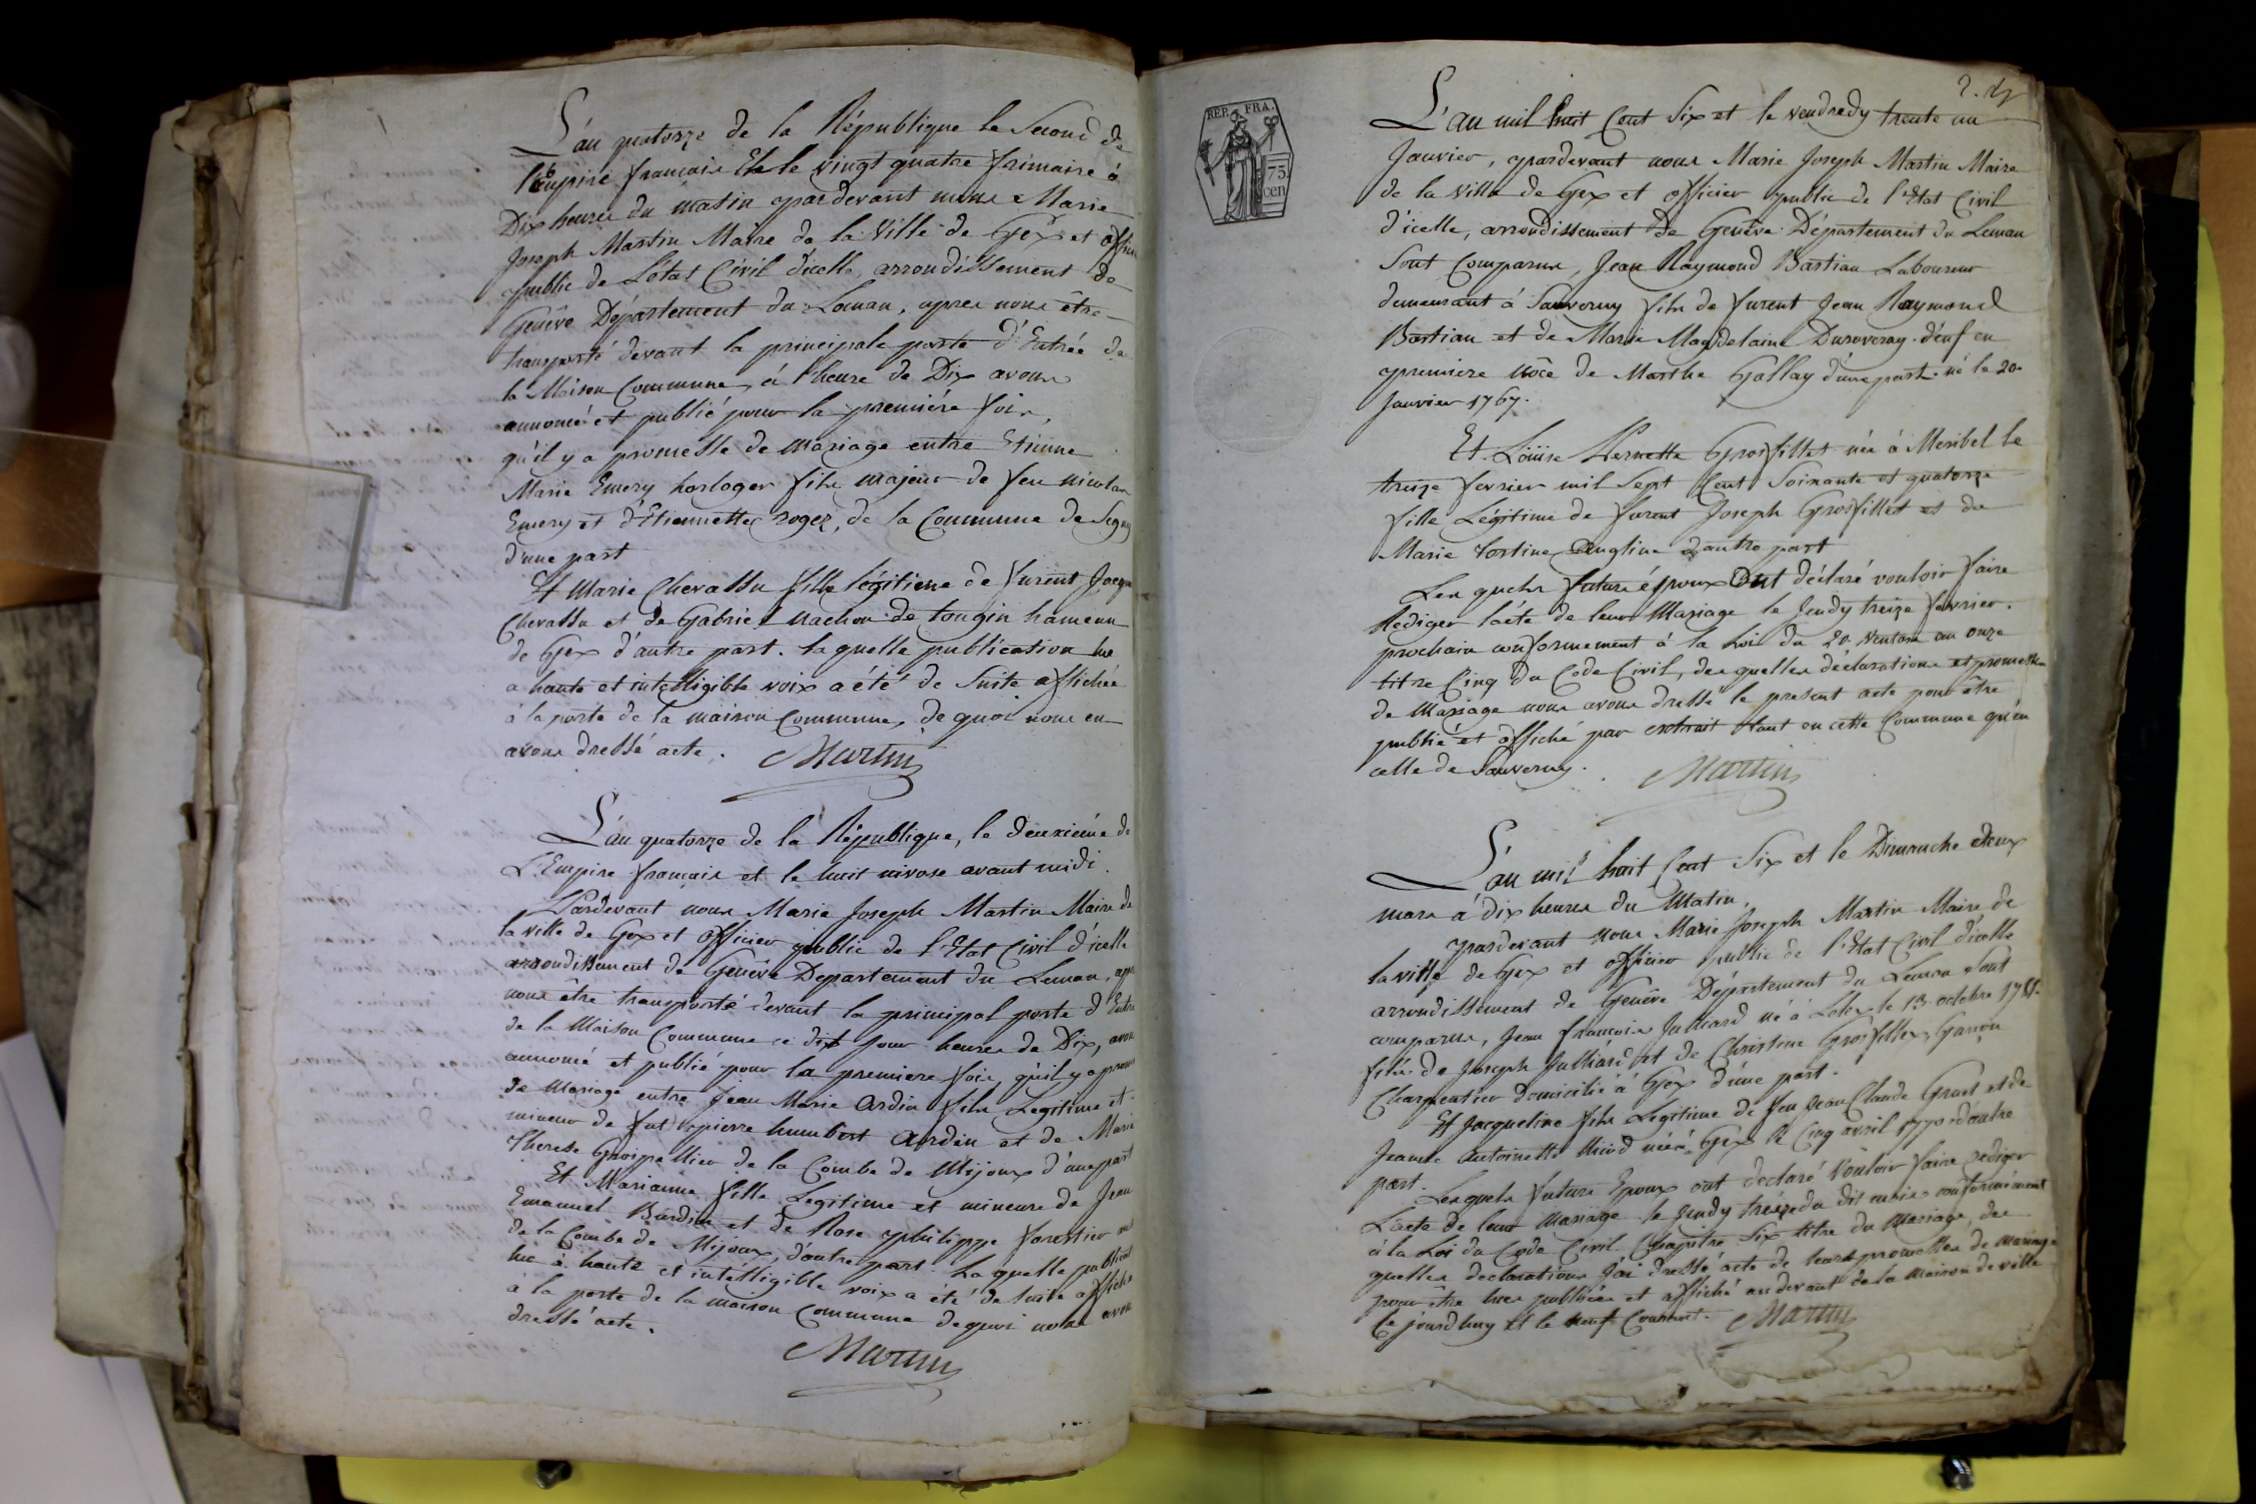 L'an quatorze de la République le Second de
l'Empire français Et le vingt quatre frimaire à
Dix heures du matin pardevant nous Marie
Joseph Martin Maire de la Ville de Gex et offici
public de Letat Civil dicelle, arrondissement de
Genève Département du Leman, apres nous être
transporté devant la principale porte d'Entrée de
la Maison Commune, à l'heure de Dix avons
annoncé et publié pour la première fois,
qu'il y a promesse de mariage entre Etienne
Marie Emery horloger fils majeur de feu Nicolas
Emery et d'Etiennette roger, de la Commune de Segny
d'une part
Et Marie Chevassu fille légitime de furent Jacque
Chevassu et de Gabriel Machon de tougin hameau
de Gex d'autre part. laquelle publication lue
a haute et intelligible voix a été de Suite affichée
à la porte de la maison Commune, de quoi nous en
avons dressé acte. Martin
L'an quatorze de la République, le deuxième de
L'Empire français et le huit nivose avant midi.
Pardevant nous Marie Joseph Martin Maire de
la ville de Gex et officier public de l'Etat Civil d'icelle
arrondissement de Genève Departement du Leman, apr
nous être transporté devant la principal porte d'Entre
de la Maison Commune ce dit jour heures de Dix, avon
annoncé et publié pour la premiere fois, qu'il y a prom
de Mariage entre Jean Marie Ardin fils Legitime et
mineur de fut pierre humbert Ardin et de Marie
Therese de la Combe de Mijoux d'une part
Et Marianne fille Legitime et mineure de Jean
Emanuel Burdin et de Rose philippe forestier
de la Combe de Mijoux, d'autre part. La quelle publicat
lue à haute et intélligible voix a été de suite affiche
à la porte de la maison Commune de quoi nous avon
dressé acte.
Martin
REP. FRA.
75
cen
L'an mil huit Cent Six et le vendredy trente un
Janvier, pardevant nous Marie Joseph Martin Maire
de la Ville de Gex et officier public de l'Etat Civil
d'icelle, arrondissement de Genève Département du Leman
Sont Comparus, Jean Raymond Bastian Laboureur
demeurant à Sauverny fils de furent Jean Raymond
Bastian et de Marie Magdelaine Duroveray. veuf en
premiere nôce de Marthe Gallay d'une part né le 20
Janvier 1767.
Et Löuise Pernette Grosfillet née à Meribel le
treize fevrier mil Sept Cent Soixante et quatorze
fille Légitime de furent Joseph Grosfillet et de
Marie d'autre part
Les quels future époux Ont déclaré vouloir faire
Rediger l'acte de leur Mariage le Jeudy treize fevrier
prochain conformement à la Loi du 20 Ventose an onze
titre Cinq du Code Civil, des quelles déclarations et promesse
de Mariage nous avons dressé le present acte pour être
publié et affiché par extrait tant en cette Commune qu'en
celle de Sauverny. Martin
L'an mil huit Cent Six et le Dimanche deux
mars à dix heures du Matin.
pardevant nous Marie Joseph Martin Maire de
la ville de Gex et officier public de l'Etat Civil d'icelle
arrondissement de Genève Département du Leman Sont
comparus, Jean françois Julliard né à Lelex le 13 octobre
fils de Joseph Julliard et de Christine Grosfillex, Garçon
Charpentier domicilié à Gex d'une part.
Et Jacqueline fille Legitime de feu Jean Claude et de
Jeanne Antoinette née à Gex le Cinq avril 1770 d'autre
part.
Lesquels futurs Epoux ont declaré Vouloir faire rediger
L'acte de leur Mariage le Jeudy treize du dit mois conformément
à la Loi du Code Civil Chapitre Six titre du Mariage, des
quelles declarations J'ai dressé acte de leurs promesses de mariage
pour être lues publiées et affiché au devant de la Maison de ville
Ce jourdhuy et le neuf Courant. Martin